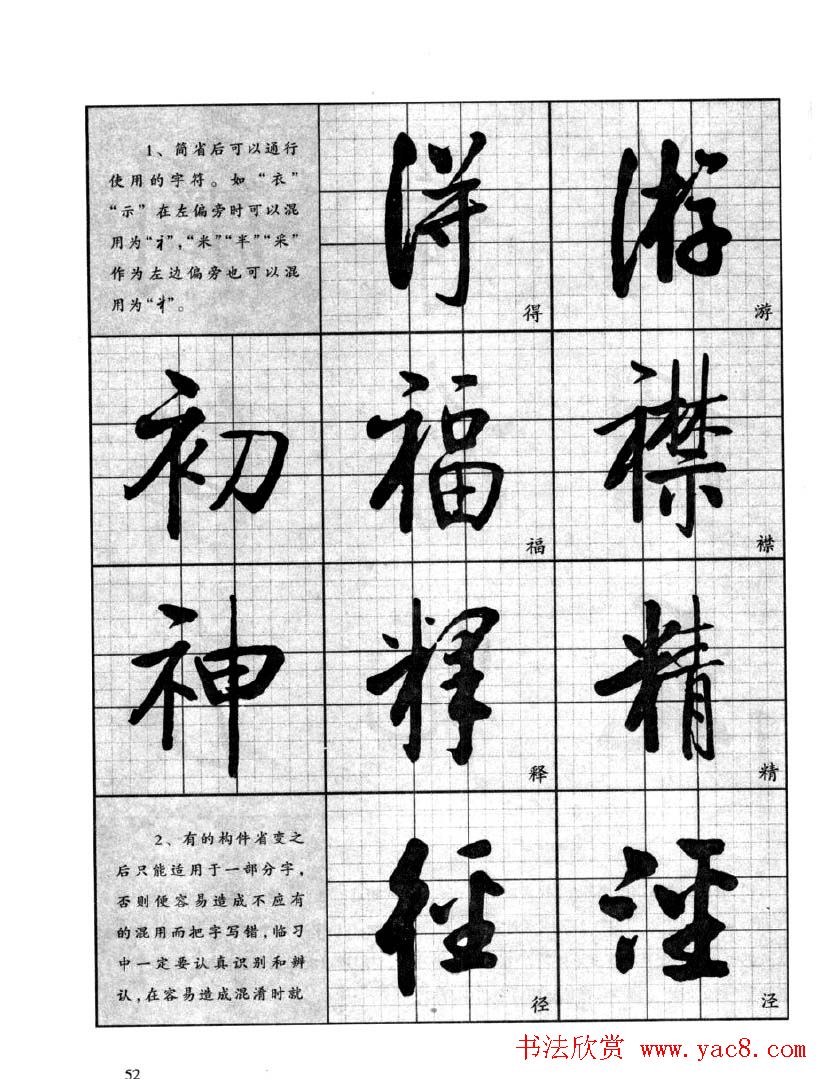 1、简省后可以通行
使用的字符。如“衣”
“示”在左偏旁时可以混
用为“礻”，“米”“半”“釆”
作为左边偏旁也可以混
用为“”。
得
得
游
游
初
福
福
襟
襟
神
释
释
精
精
2、有的构件省变之
后只能适用于一部分字，
否则便容易造成不应有
的混用而把字写错，临习
中一定要认真识别和辨
认，在容易造成混淆时就
径
径
泾
泾
52
书法欣赏 www.yac8.com